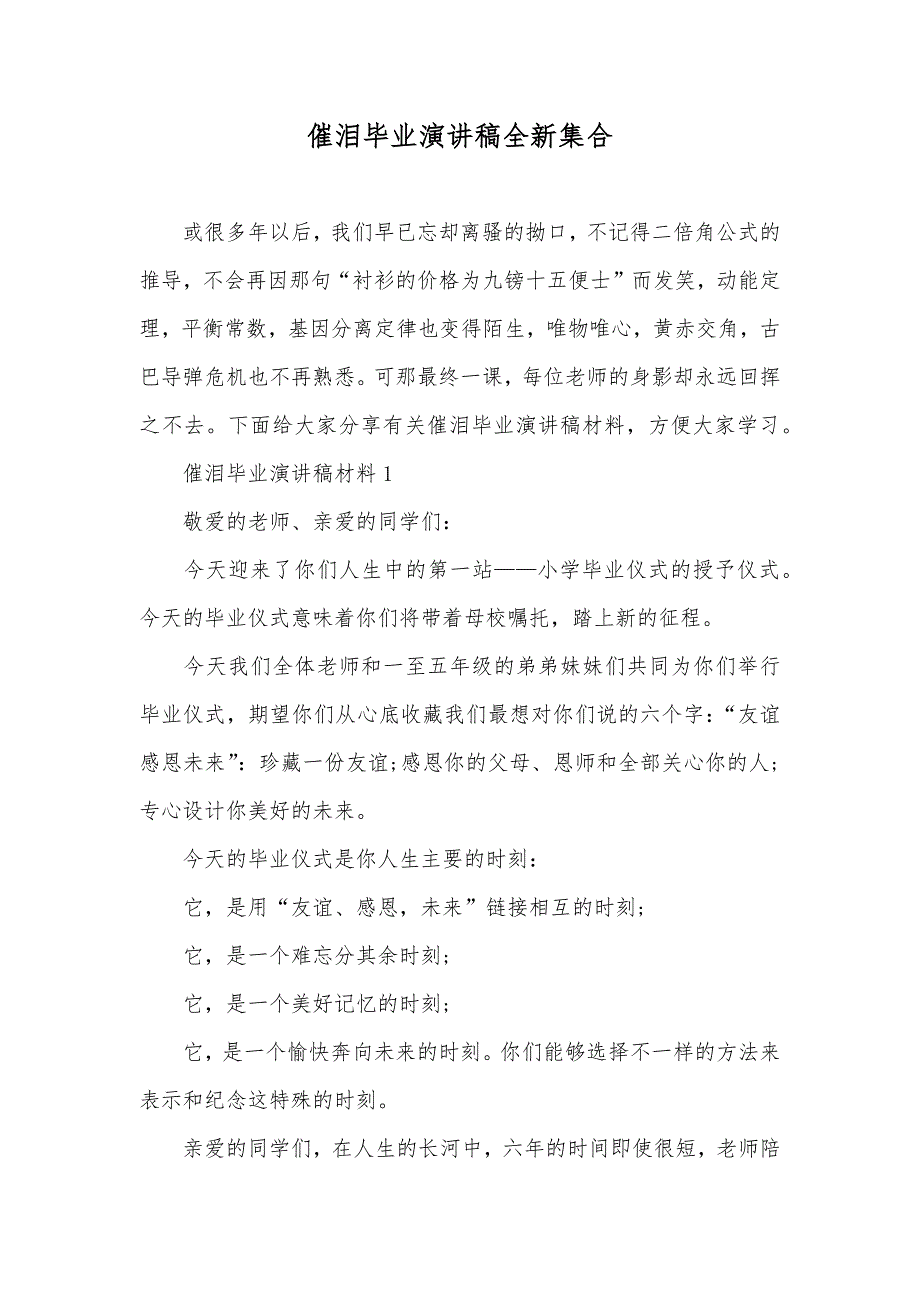 催泪毕业演讲稿全新集合
或很多年以后，我们早已忘却离骚的拗口，不记得二倍角公式的
推导，不会再因那句“衬衫的价格为九镑十五便士”而发笑，动能定
理，平衡常数，基因分离定律也变得陌生，唯物唯心，黄赤交角，古
巴导弹危机也不再熟悉。可那最终一课，每位老师的身影却永远回挥
之不去。下面给大家分享有关催泪毕业演讲稿材料，方便大家学习。
催泪毕业演讲稿材料1
敬爱的老师、亲爱的同学们：
今天迎来了你们人生中的第一站——小学毕业仪式的授予仪式。
今天的毕业仪式意味着你们将带着母校嘱托，踏上新的征程。
今天我们全体老师和一至五年级的弟弟妹妹们共同为你们举行
毕业仪式，期望你们从心底收藏我们最想对你们说的六个字：“友谊
感恩未来”：珍藏一份友谊;感恩你的父母、恩师和全部关心你的人;
专心设计你美好的未来。
今天的毕业仪式是你人生主要的时刻：
它，是用“友谊、感恩，未来”链接相互的时刻;
它，是一个难忘分其余时刻;
它，是一个美好记忆的时刻;
它，是一个愉快奔向未来的时刻。你们能够选择不一样的方法来
表示和纪念这特殊的时刻。
亲爱的同学们，在人生的长河中，六年的时间即使很短，老师陪